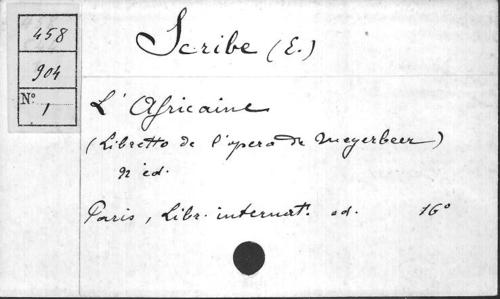 458
904
No. 1
Scribe (E.)
L'Africaine
(Libretto de l'opera de Meyerbeer)
n éd.
Paris, Libr. internat. ed. 16°